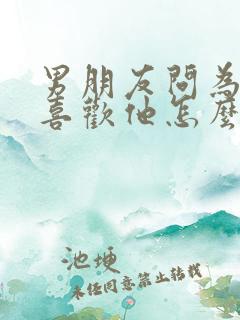 男朋友問為
喜歡他怎麼
池塰
未經同意禁止轉載